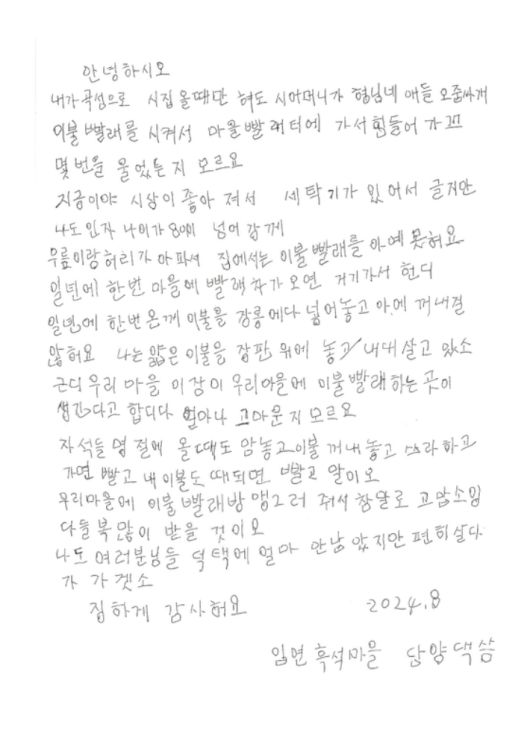 안녕하시오
내가 곡성으로 시집 올때만 혀도 시어머니가 형님네 애들 오줌싸게
이불 빨래를 시켜서 마을빨래터에 가서 힘들어 가꼬
몇번을 울었는지 모르요
지금이야 시상이 좋아 져서 세탁기가 있어서 글지만
나도 인자 나이가 80이 넘어 강께
무릎이랑 허리가 아파서 집에서는 이불빨래를 아예 못혀요
일년에 한번 마을에 빨래차가 오면 거기가서 헌디
일년에 한번온께 이불을 장롱에다 넣어놓고 아에 꺼내질
않혀요 나는 얇은 이불을 장판 위에 놓고 내내 살고 있소
근디 우리 마을 이장이 우리마을에 이불빨래하는 곳이
생긴다고 합디다 얼마나 고마운지 모르요
자석들 명절에 올때도 맘놓고 이불 꺼내놓고 쓰라하고
가면 빨고 내 이불도 때되면 빨고 말이오
우리마을에 이불 빨래방 맹그러 줘서 참말로 고맙소잉
다들 복많이 받을 것이오
나도 여러분님들 덕택에 얼마 안남았지만 편히살다
가 가겟소
징하게 감사혀요 2024.8
입면 흑석마을 담양댁 씀